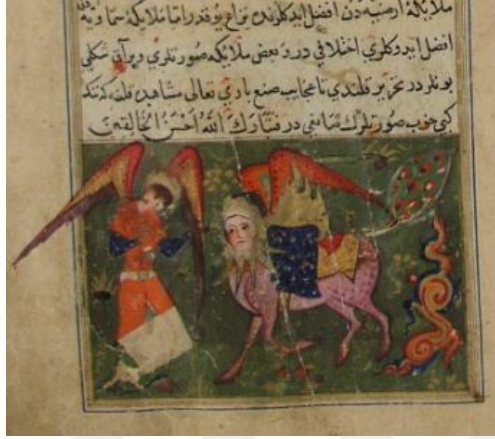 ملائكه ارضیه دن افضل ایدكلرنده نزاع یوقدر اما ملایكه سماویه
افضل ایدوكلری اختلافی در و بعض ملایكه صورتلری و براق شكلی
بونلردر تحریر قلندی تا عجایب صنع باری تعالی مشاهده قلنه
كی خوب صورتلرك صانعی در فتبارك الله احسن الخالقین